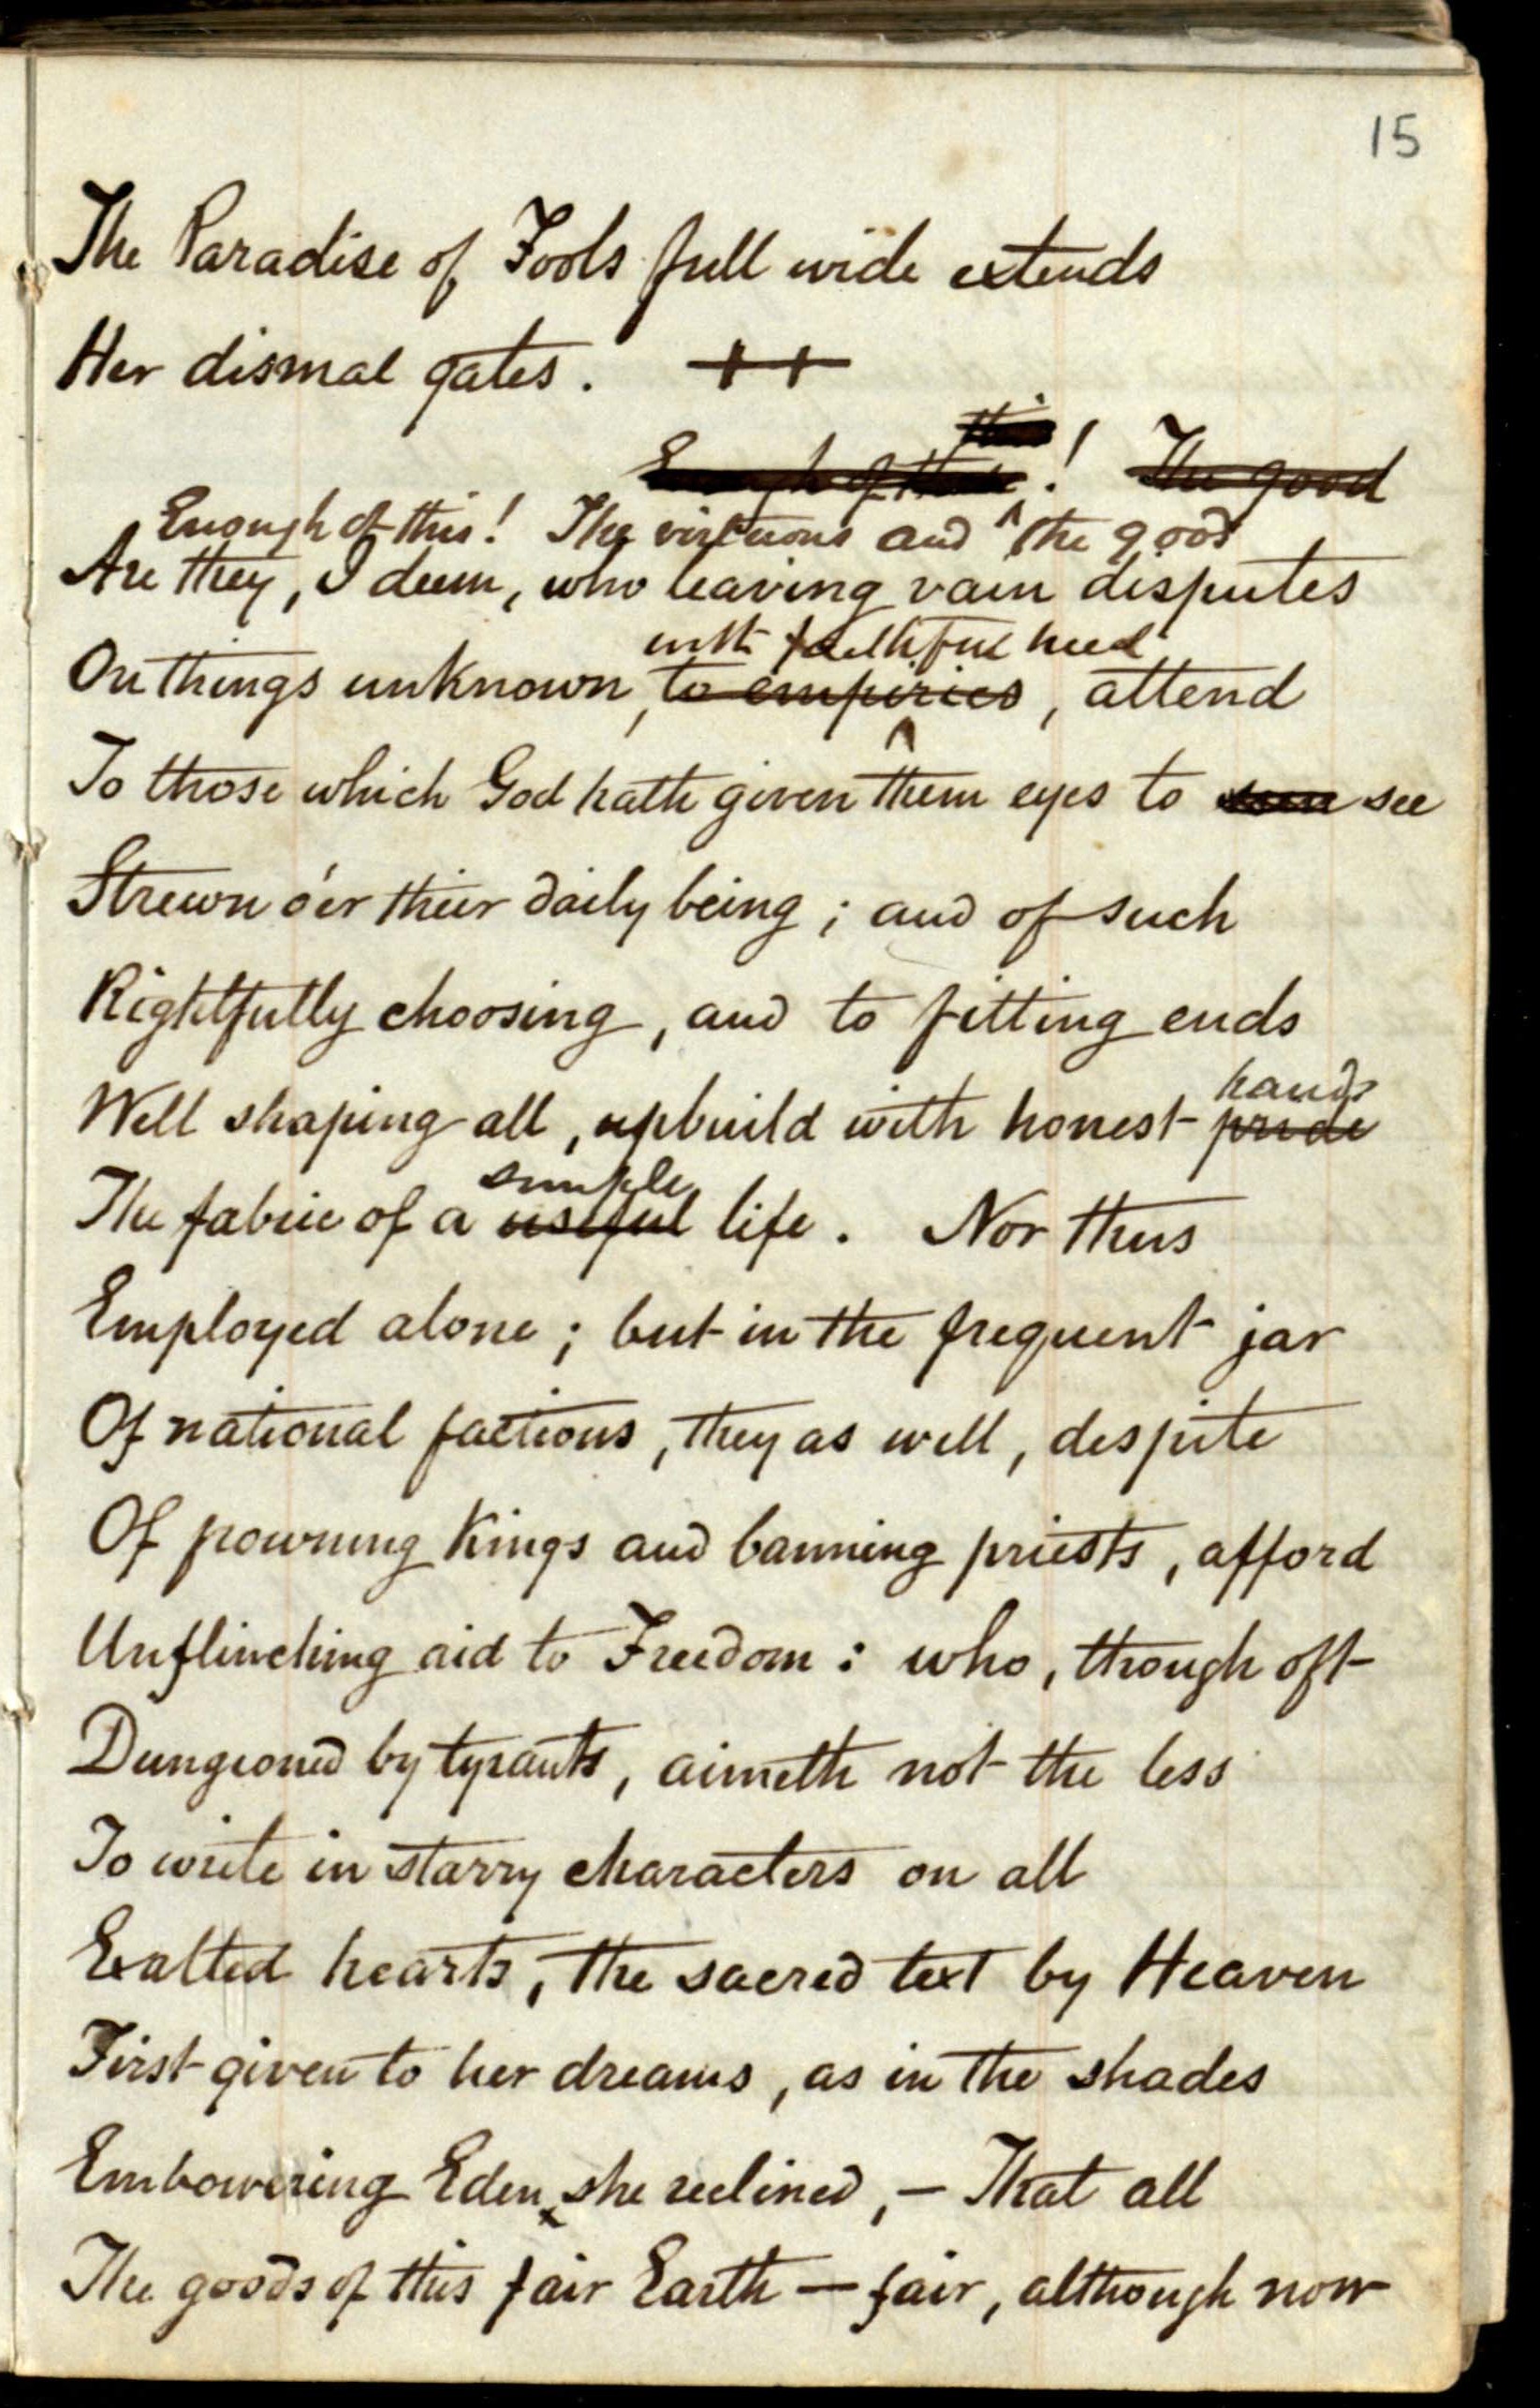 15
The Paradise of Fools full wide extends
Her dismal gates. ++
this
Enough of these! The good
Enough of this! The virtuous and the good
Are they, I deem, who leaving vain disputes
with faithful heed
On things unknown, to empirics, attend
To those which God hath given them eyes to see
Strewn o'er their daily being; and of such
Rightfully choosing, and to fitting ends
hands
Well shaping all, upbuild with honest pride
simple
The fabric of a useful life. Nor thus
Employed alone; but in the frequent jar
Of national factions, they as well, despite
Of frowning Kings and banning priests, afford
Unflinching aid to Freedom: who, though oft
Dungeoned by tyrants, aimeth not the less
To write in starry characters on all
Exalted hearts, the sacred text by Heaven
First given to her dreams, as in the shades
Embowering Eden she reclined,— That all
The goods of this fair Earth — fair, although now